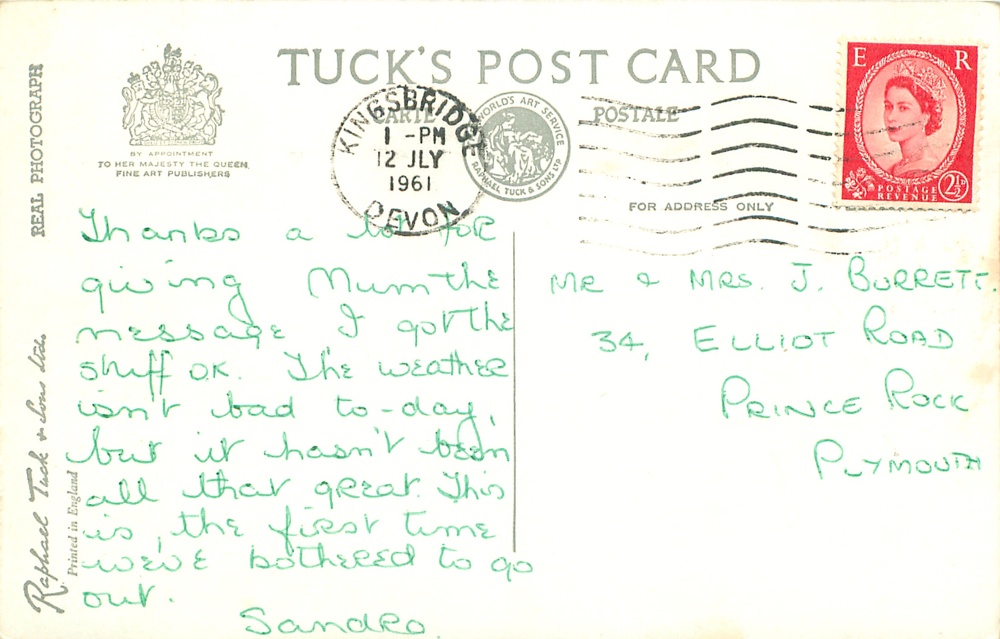 REAL PHOTOGRAPH
BY APPOINTMENT
TO HER MAJESTY THE QUEEN
FINE ART PUBLISHERS
TUCK'S POST CARD
CARTE POSTALE
KINGSBRIDGE
1 - PM
12 JLY
1961
DEVON
WORLD'S ART SERVICE
RAPHAEL TUCK & SONS LTD
FOR ADDRESS ONLY
E R
POSTAGE
REVENUE
2½D
Thanks a lot for
giving Mum the
message, I got the
stuff O.K. The weather
isn't bad to-day,
but it hasn't been
all that great. This
is, the first time
we've bothered to go
out.
Sandra.
MR & MRS. J. BURRETT.
34, ELLIOT ROAD
PRINCE ROCK
PLYMOUTH
Raphael Tuck & Sons Ltd.
Printed in England